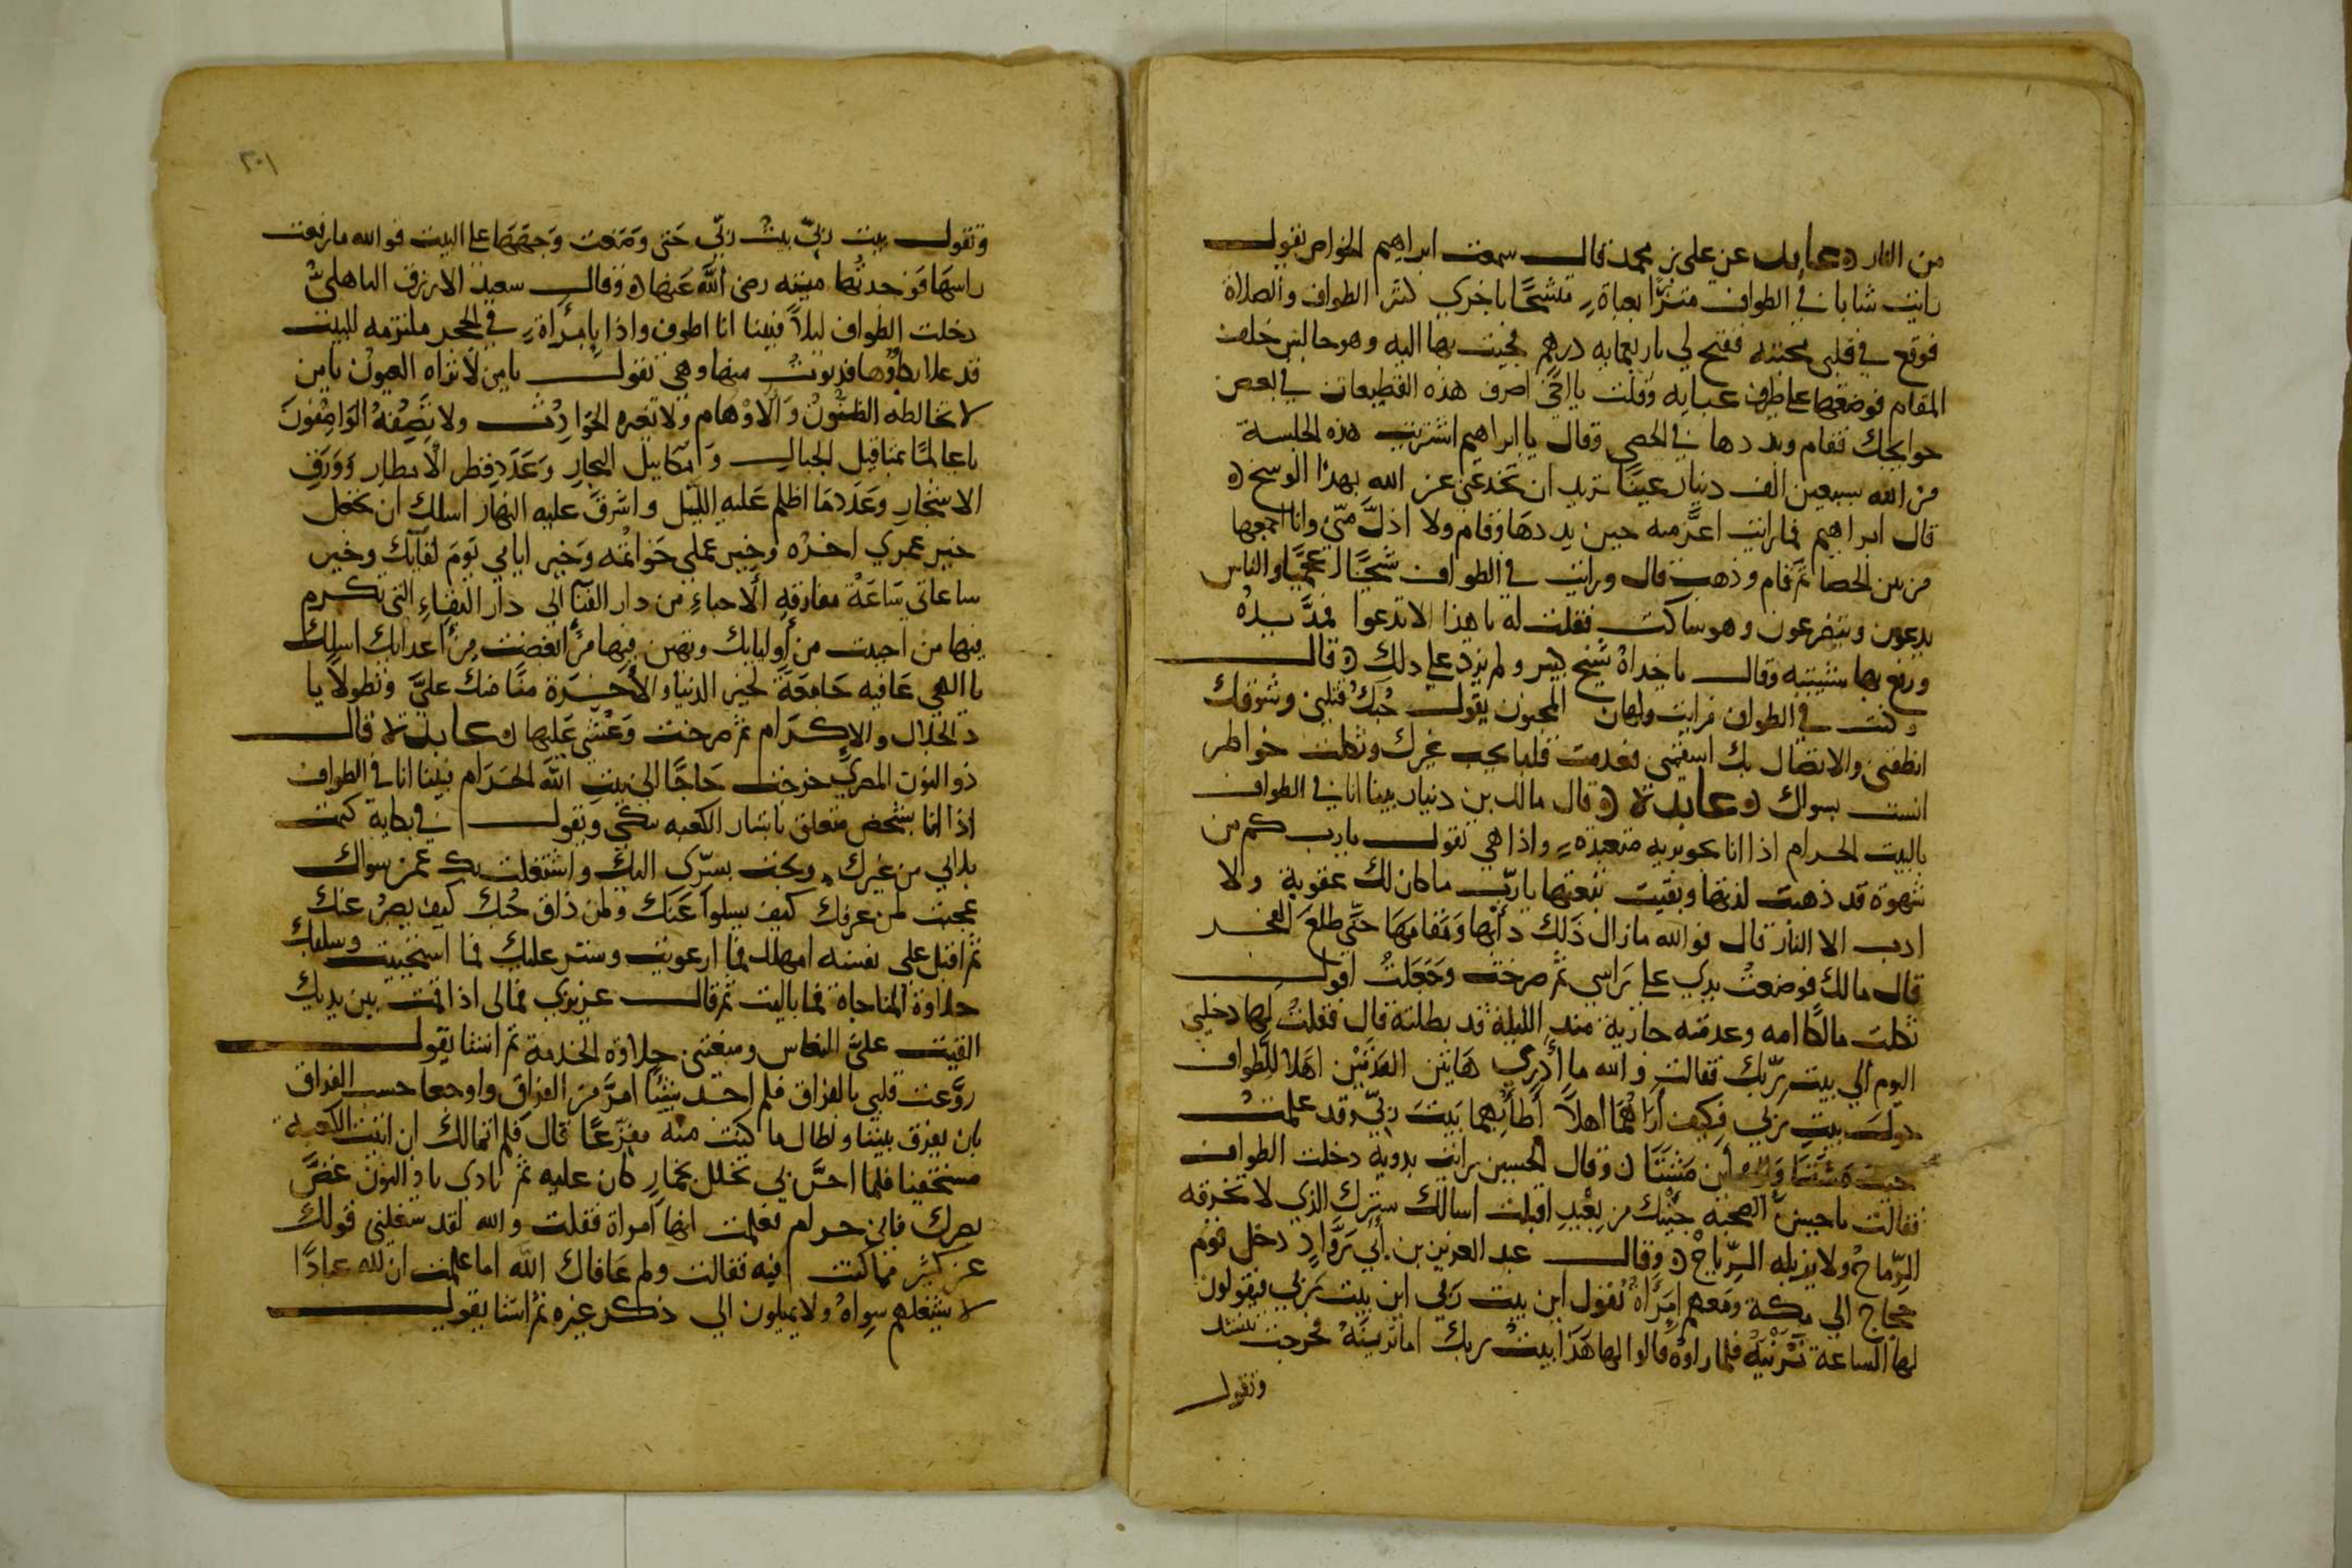 من النار عابد عن علي بن محمد قال سمعت ابراهيم الخواص يقول
رايت شابا في الطواف متزرا بعباة متشحا باخرى كثير الطواف والصلاة
فوقع في قلبي محبته ففتح لي باربعمايه درهم فجيت بها اليه وهو جالس خلف
المقام فوضعتها على طرف عبايه وقلت يا اخي اصرف هذه القطيعات في بعض
حوايجك فقام وبددها في الحصى وقال يا ابراهيم اشتريت هذه الجلسة
من الله بسبعين الف دينار عينا تريد ان تخدعني عن الله بهذا الوسخ
قال ابراهيم فما رايت اعز منه حين بددها وقام ولا اذل مني وانا اجمعها
من بين الحصا ثم قام وذهب قال ورايت في الطواف شيخا اعجميا والناس
يدعون ويتضرعون وهو ساكت فقلت له يا هذا الا تدعوا فمد يده
ورفع بها شيبته وقال يا خداه شيخ كبير ولم يزد على ذلك قال
وكنت في الطواف فرايت ولهان المجنون يقول حبك قتلني وشوقك
اتلفني والاتصال بك اسقمني فعدمت قلبا يحب غيرك وثكلت خواطر
انست بسواك عابدة قال مالك بن دينار بينا انا في الطواف
بالبيت الحرام اذا انا بجويرية متعبدة واذا هي تقول يارب كم من
شهوة قد ذهبت لذتها وبقيت تبعتها يارب ما كان لك عقوبة ولا
ادب الا النار قال فوالله مازال ذلك دابها ومقامها حتى طلع الفجر
قال مالك فوضعت يدي على راسي ثم صرخت وجعلت اقول
ثكلت مالكا امه وعدمته جارية منذ الليلة قد بطلته قال فقلت لها دخلتي
اليوم الي بيت ربك فقالت والله ما ادري هاتين القدمين اهلا للطواف
حول بيت ربي فكيف اراهما اهلا اطا بهما بيت ربي وقد علمت
حيث مشتا واين مشتا وقال الحسين رايت بدوية دخلت الطواف
فقالت يا حسن الصحبه جيتك من بعيد اقبلت اسالك سترك الذي لا تخرقه
الرماح ولا يزيله الرياح وقال عبد العزيز بن ابي رواد دخل قوم
حجاج الي مكة ومعهم امراة تقول اين بيت ربي اين بيت ربي فيقولون
لها الساعة ترينه فلما راوه قالوا لها هذا بيت ربك اما ترينه فخرجت تشتد
وتقول
٢٠١
وتقول بيت ربي بيت ربي حتى وضعت وجهها على البيت فوالله ما رفعت
راسها فوجدتها ميته رضي الله عنها وقال سعيد الازرق الباهلي
دخلت الطواف ليلا فبينا انا اطوف واذا بامراة في الحجر ملتزمه للبيت
قد علا بكاوها فدنوت منها وهي تقول يا من لا تراه العيون يا من
لا تخالطه الظنون والاوهام ولا تغيره الحوادث ولا يصفه الواصفون
يا عالما بمثاقيل الجبال ومكاييل البحار وعدد قطر الامطار وورق
الاشجار وعدد ما اظلم عليه الليل واشرق عليه النهار اسلك ان تجعل
خير عمري اخره وخير عملي خواتمه وخير ايامي يوم لقايك وخير
ساعاتي ساعة مفارقه الاحياء من دار الفنا الي دار البقاء التي تكرم
فيها من احببت من اوليايك وتهين فيها من ابغضت من اعدايك اسلك
يا الهي عافيه جامعة لخير الدنيا والاخرة منا منك علي وتطولا يا
ذ الجلال والاكرام ثم صرخت وغشي عليها عابدة قال
ذو النون المصري خرجت حاجا الي بيت الله الحرام فبينا انا في الطواف
اذا انا بشخص متعلق باستار الكعبه يبكي ويقول في بكايه كتمت
بلاي من غيرك وبحت بسري اليك واشتغلت بك عمن سواك
عجبت لمن عرفك كيف يسلوا عنك ولمن ذاق حبك كيف يصبر عنك
ثم اقبل على نفسه امهلك فما ارعويت وستر عليك فما استحييت وسلبك
حلاوة المناجاة فما باليت ثم قال عزيزي فمالي اذا قمت بين يديك
القيت علي النعاس ومنعتني حلاوة الخدمة ثم انشا يقول
روعت قلبي بالفراق فلم اجد شيئا امر من الفراق واوجعا حسب الفراق
بان يفرق بيننا ولطال ما كنت منه مفزعا قال فلم اتمالك ان اتيت الكعبة
مستخفيا فلما احس بي تخلل بخمار كان عليه ثم نادى يا ذو النون غض
بصرك فاني حرام فعلمت انها امراة فقلت والله لقد شغلني قولك
عن كثير مما كنت فيه فقالت ولم عافاك الله اما علمت ان لله عبادا
لا يشغلهم سواه ولا يميلون الي ذكر غيره ثم انشا يقول